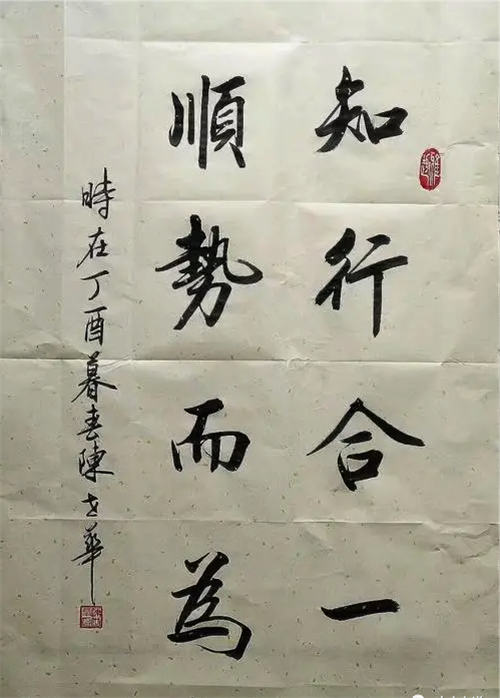 知行合一
順勢而為
時在丁酉暮春陳華